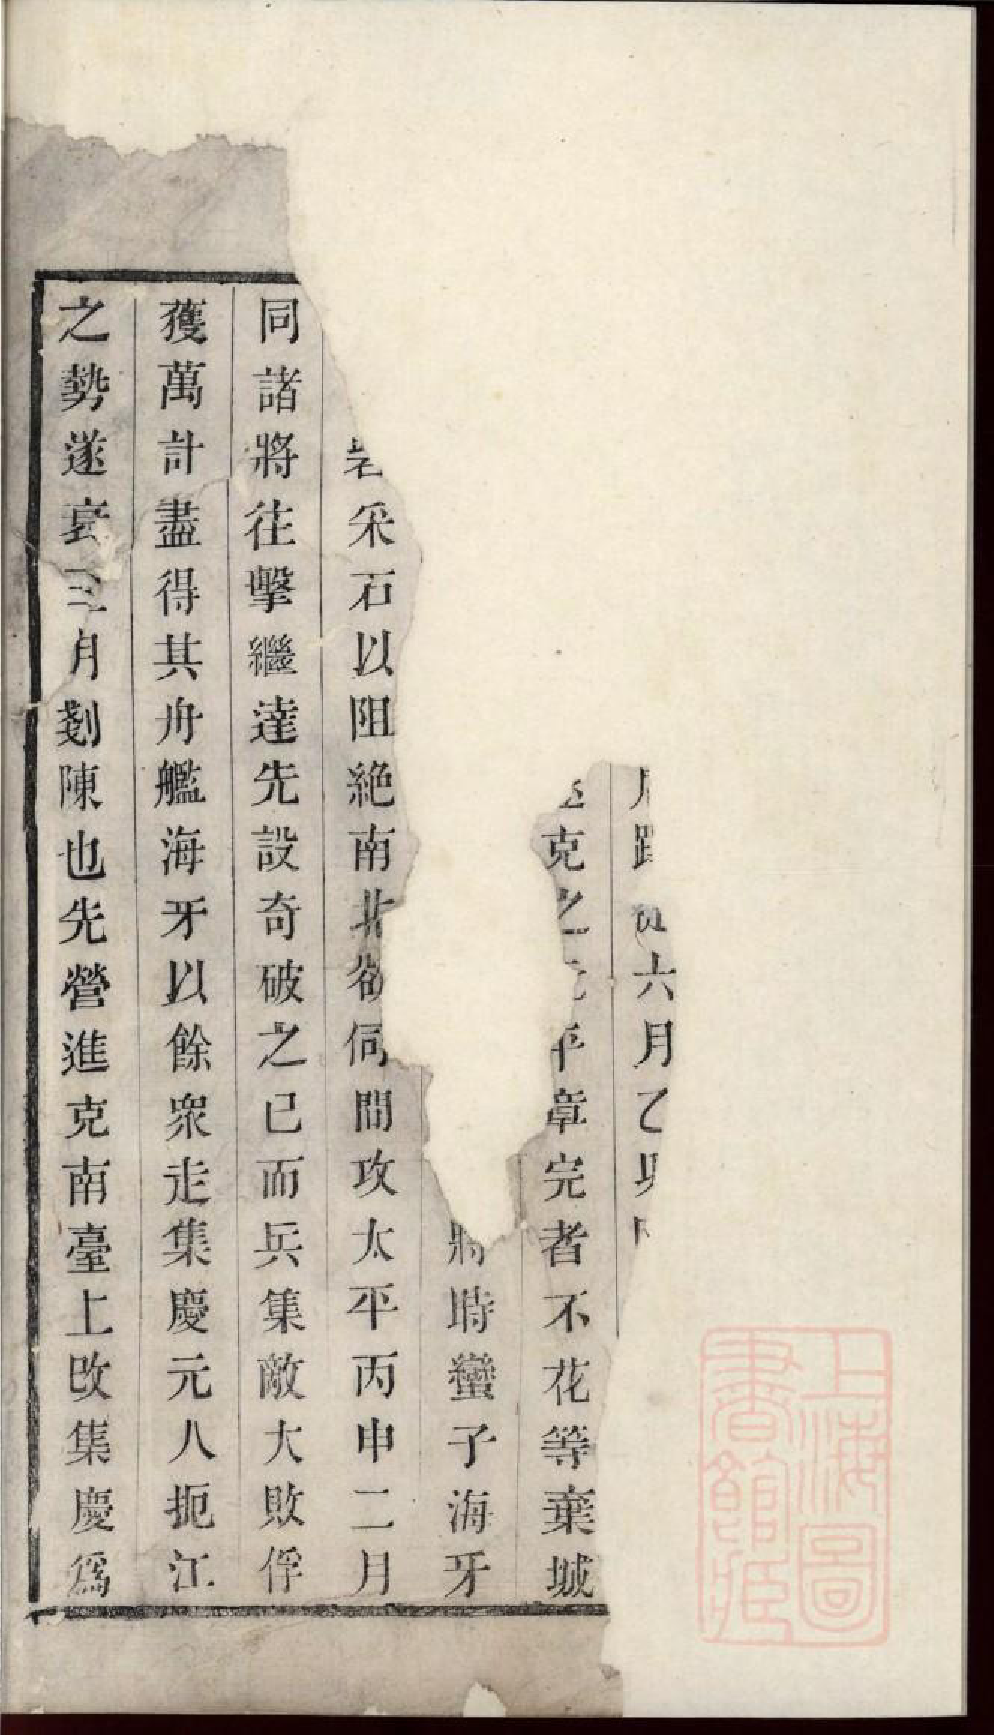 六月乙
克之平章完者不花等棄城
將時蠻子海牙
采石以阻絕南北欲伺間攻太平丙申二月
同諸將往擊繼達先設奇破之已而兵集敵大敗俘
獲萬計盡得其舟艦海牙以餘衆走集慶元人扼江
之勢遂衰三月剗陳也先營進克南臺上攻集慶爲
上海圖書館藏